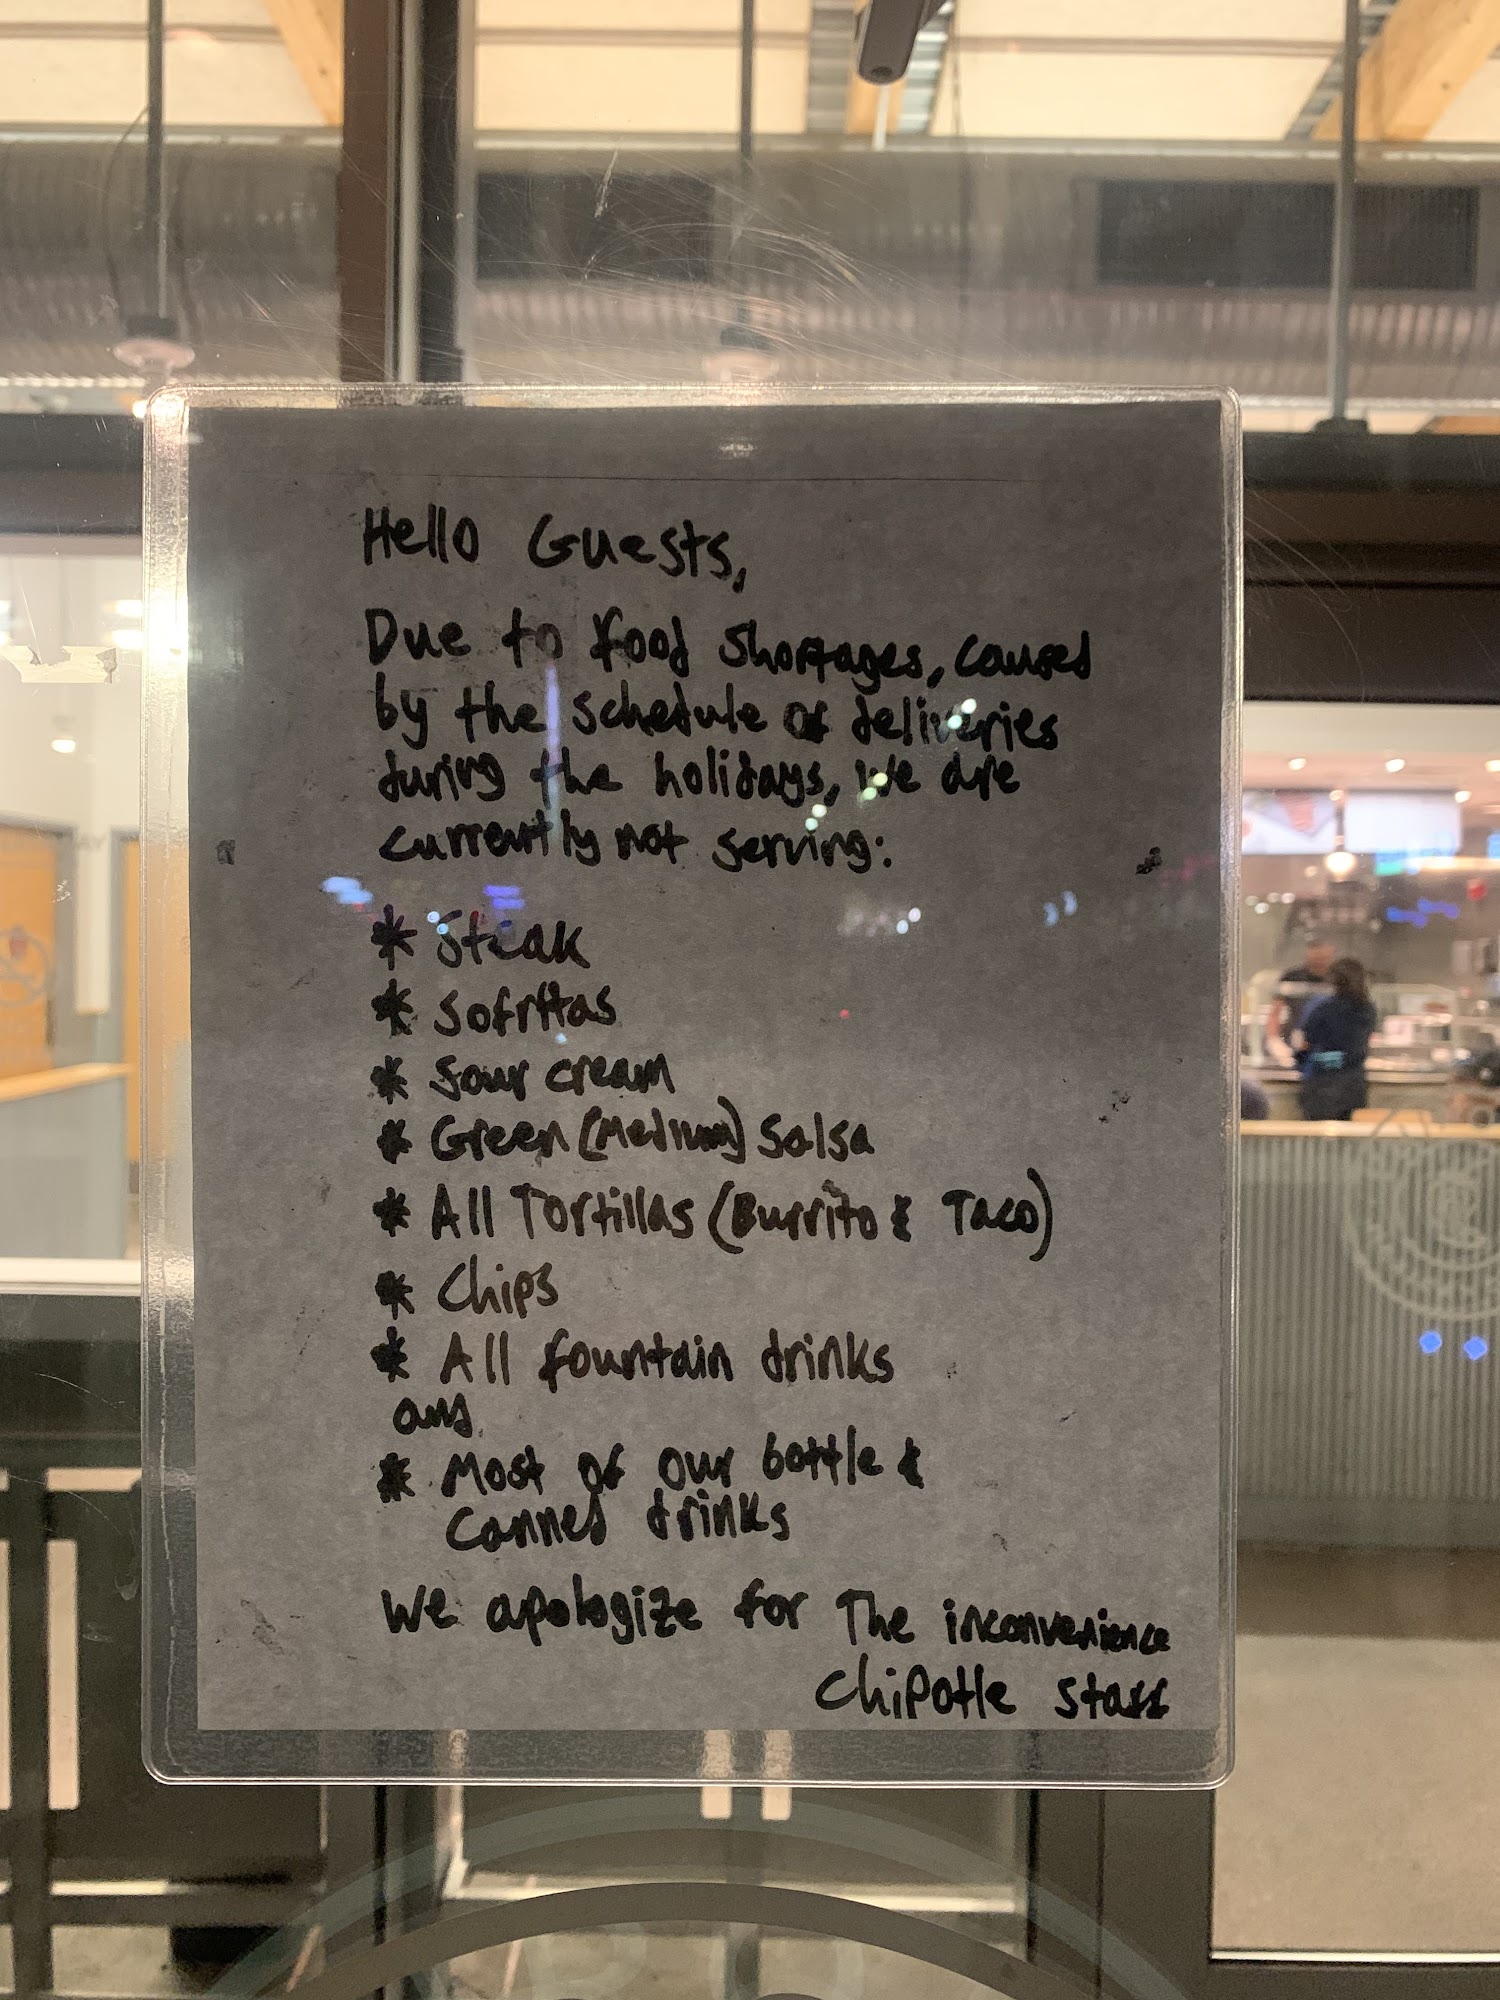 Hello Guests,
Due to food shortages, caused
by the schedule of deliveries
during the holidays, we are
currently not serving:
* Steak
* Sofritas
* Sour cream
* Green (Medium) Salsa
* All Tortillas (Burrito & Taco)
* Chips
* All fountain drinks
and
* Most of our bottle &
canned drinks
We apologize for The inconvenience
Chipotle staff